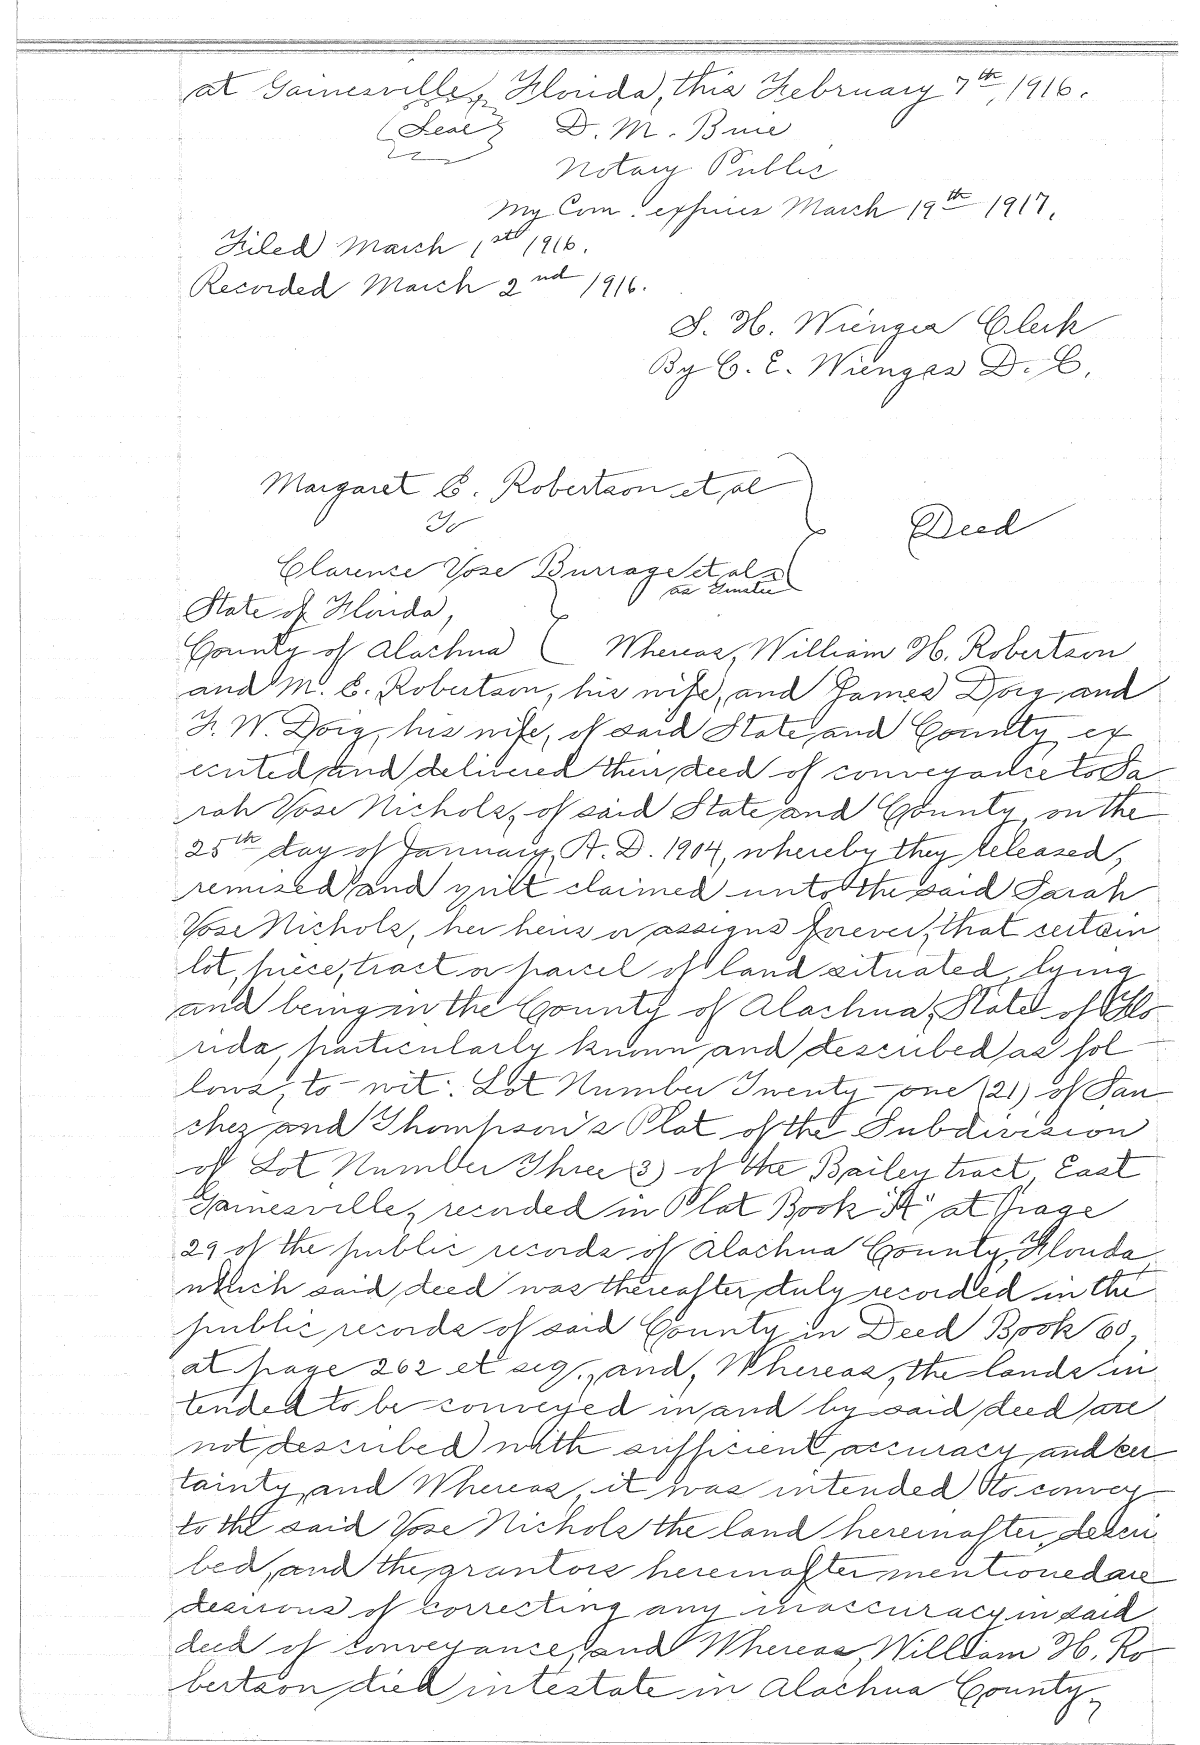 at Gainesville, Florida, this February 7th, 1916.
(Seal) D. M. Buie
Notary Public
My Com. expires March 19th 1917.
Filed March 1st 1916.
Recorded March 2nd 1916.
S. H. Wienges Clerk
By C. E. Wienges D. C.
Margaret C. Robertson et al
To
Deed
Clarence Vose Burrage et als
as Trustee
State of Florida,
County of Alachua Whereas, William H. Robertson
and M. C. Robertson, his wife, and James Doig and
F. W. Doig, his wife, of said State and County ex
ecuted and delivered their deed of conveyance to Sa
rah Vose Nichols, of said State and County, on the
25th day of January, A. D. 1904, whereby they released,
remised and quilt claimed unto the said Sarah
Vose Nichols, her heirs or assigns forever, that certain
lot, piece, tract or parcel of land situated, lying
and being in the County of Alachua, State of Flo
rida, particularly known and described as fol
lows, to-wit: Lot Number Twenty-one (21) of San
chez and Thompson's Plat of the Subdivision
of Lot Number Three (3) of the Bailey tract, East
Gainesville, recorded in Plat Book "A" at page
29 of the public records of Alachua County, Florida,
which said deed was thereafter duly recorded in the
public records of said County in Deed Book 60,
at page 262 et seq., and, Whereas, the lands in
tended to be conveyed in and by said deed are
not described with sufficient accuracy and cer
tainty, and Whereas, it was intended to convey
to the said Vose Nichols the land hereinafter descri
bed, and the grantors hereinafter mentioned are
desirous of correcting any inaccuracy in said
deed of conveyance, and Whereas, William H. Ro
bertson died intestate in Alachua County,